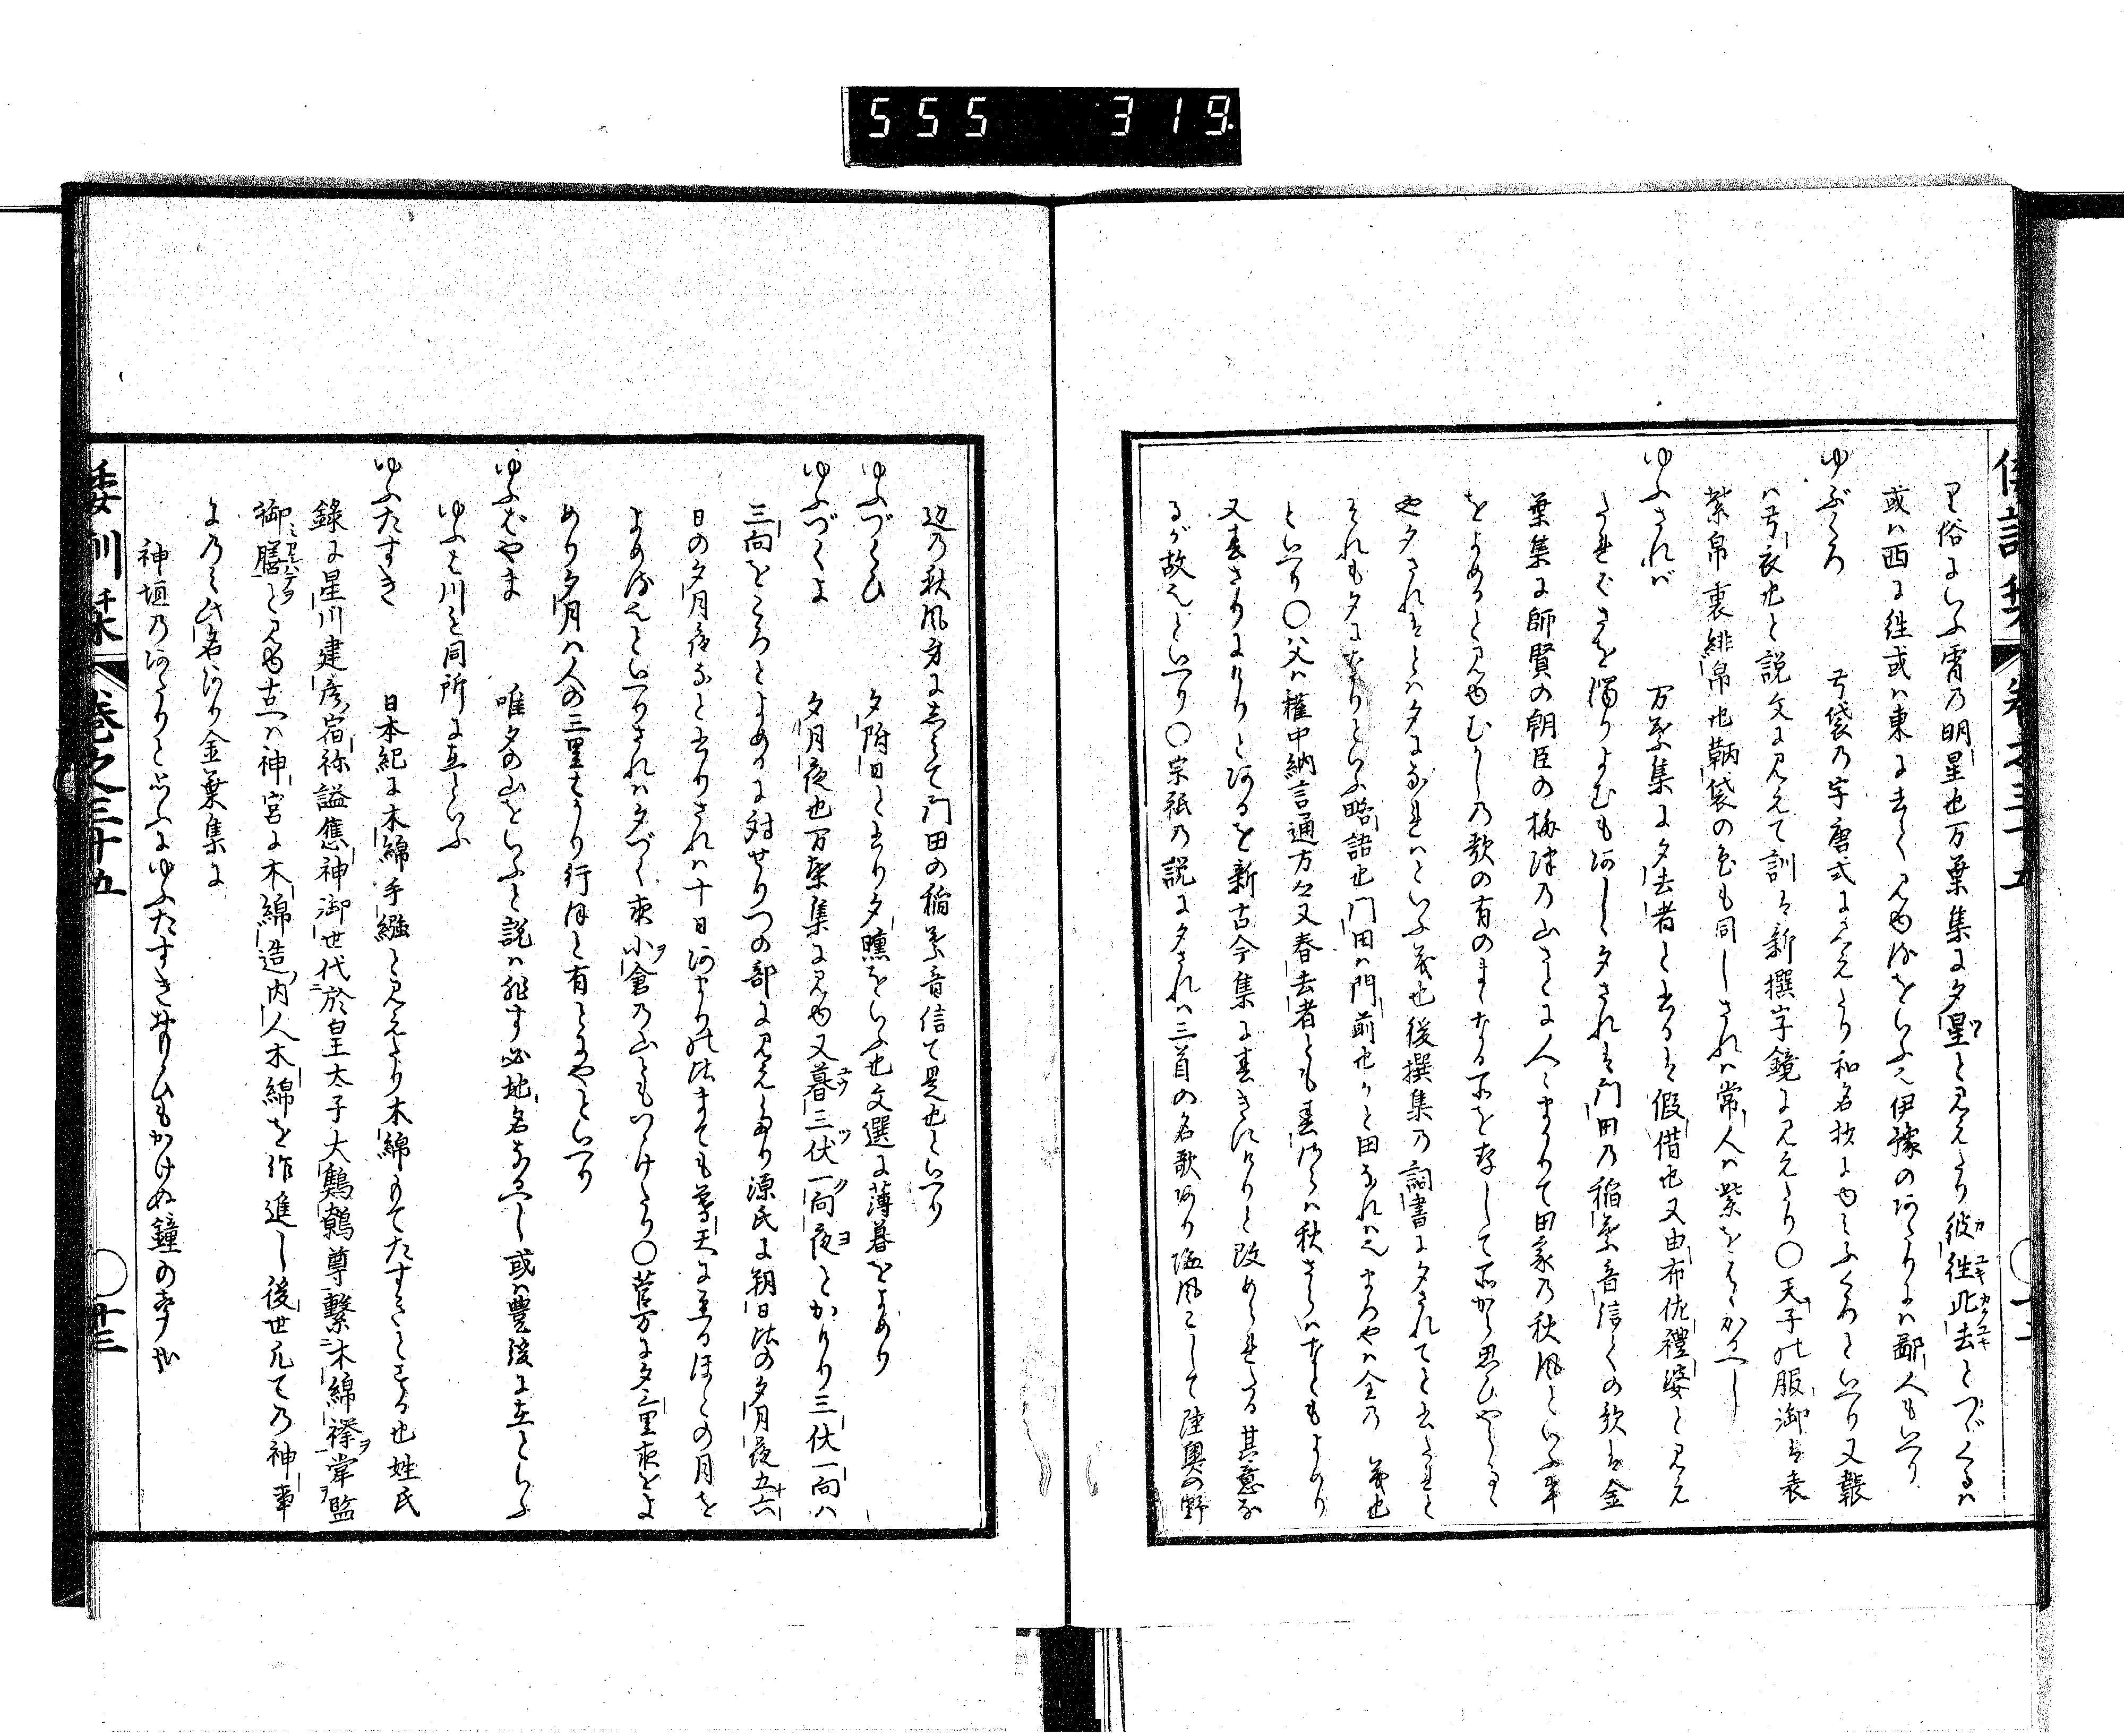 555 319
倭訓栞 巻之三十五
里俗にいふ宵乃明星也万葉集に夕星と見えたり彼往此去とつゞくるハ
或ハ西に往或ハ東に去く見ゆるをいふ也伊豫のあたりにハ鄙人もいへり
ゆぶくろ 弓袋乃字唐式に見えたり和名抄にゆみふくろといへり又韔
ハ弓衣也と説文に見えて訓は新撰字鏡に見えたり○天子の服御は表
紫帛裏緋帛也鞆袋の色も同しされハ常人ハ紫をはゝかるへし
ゆふされば 万葉集に夕去者と書るは假借也又由布佐禮婆と見え
たればさを濁りよむもあしゝ夕されは門田の稲葉音信ての歌は金
葉集に師賢の朝臣の梅津乃山さとに人々まかりて田家乃秋風といふ事
をよめると見ゆむかしの歌の有のまゝなる所を存して
や夕されはとハ夕になれハといふ義也後撰集乃詞書に夕されてと書たると
それも夕になりといふ略語也門田ハ門前也
といへり○父ハ權中納言通方也又春去者とも春されハ秋されハなともよめり
又春さりにけりとあるを新古今集に春きにけりと改められたる其意な
るが故也といへり○宗祇乃説に夕されハ三首の名歌あり塩風こして陸奥の野
辺乃秋風身にしみて門田の稲葉音信て是也といへり
ゆふづくひ 夕附日と書り夕曛をいふ也文選に薄暮をよめり
ゆふづくよ 夕月夜也万葉集に見ゆ又暮三伏一向夜とかけり三伏一向ハ
三向をころとよめるに対せりつの部に見えたり源氏に朔日比の夕月夜五六
日の夕月夜なと書りされハ十日あまりの比まても暮天に至るほとの月を
よめる也といへりされハ夕づく夜小倉の山ともつゝけたり○菅万に夕三里夜をよ
めり夕月ハ人の三里はかり行ほと有にやといへり
ゆふばやま 唯夕の山をいふと説ハ非す必地名なるへし或ハ豊後に在といふ
ゆふは川も同所に在といふ
ゆふたすき 日本紀に木綿手繦と見えたり木綿もてたすきとする也姓氏
録に星川建彦宿祢謚應神御世代於皇太子大鷦鷯尊繫木綿襷掌監
御膳と見ゆ古へハ神宮に木綿造内人木綿を作進し後世凡ての神事
にのミ此名あり金葉集に
神垣乃あたりと思ふにゆふたすき思ひもかけぬ鐘の声哉
倭訓栞 巻之三十五 ○十三